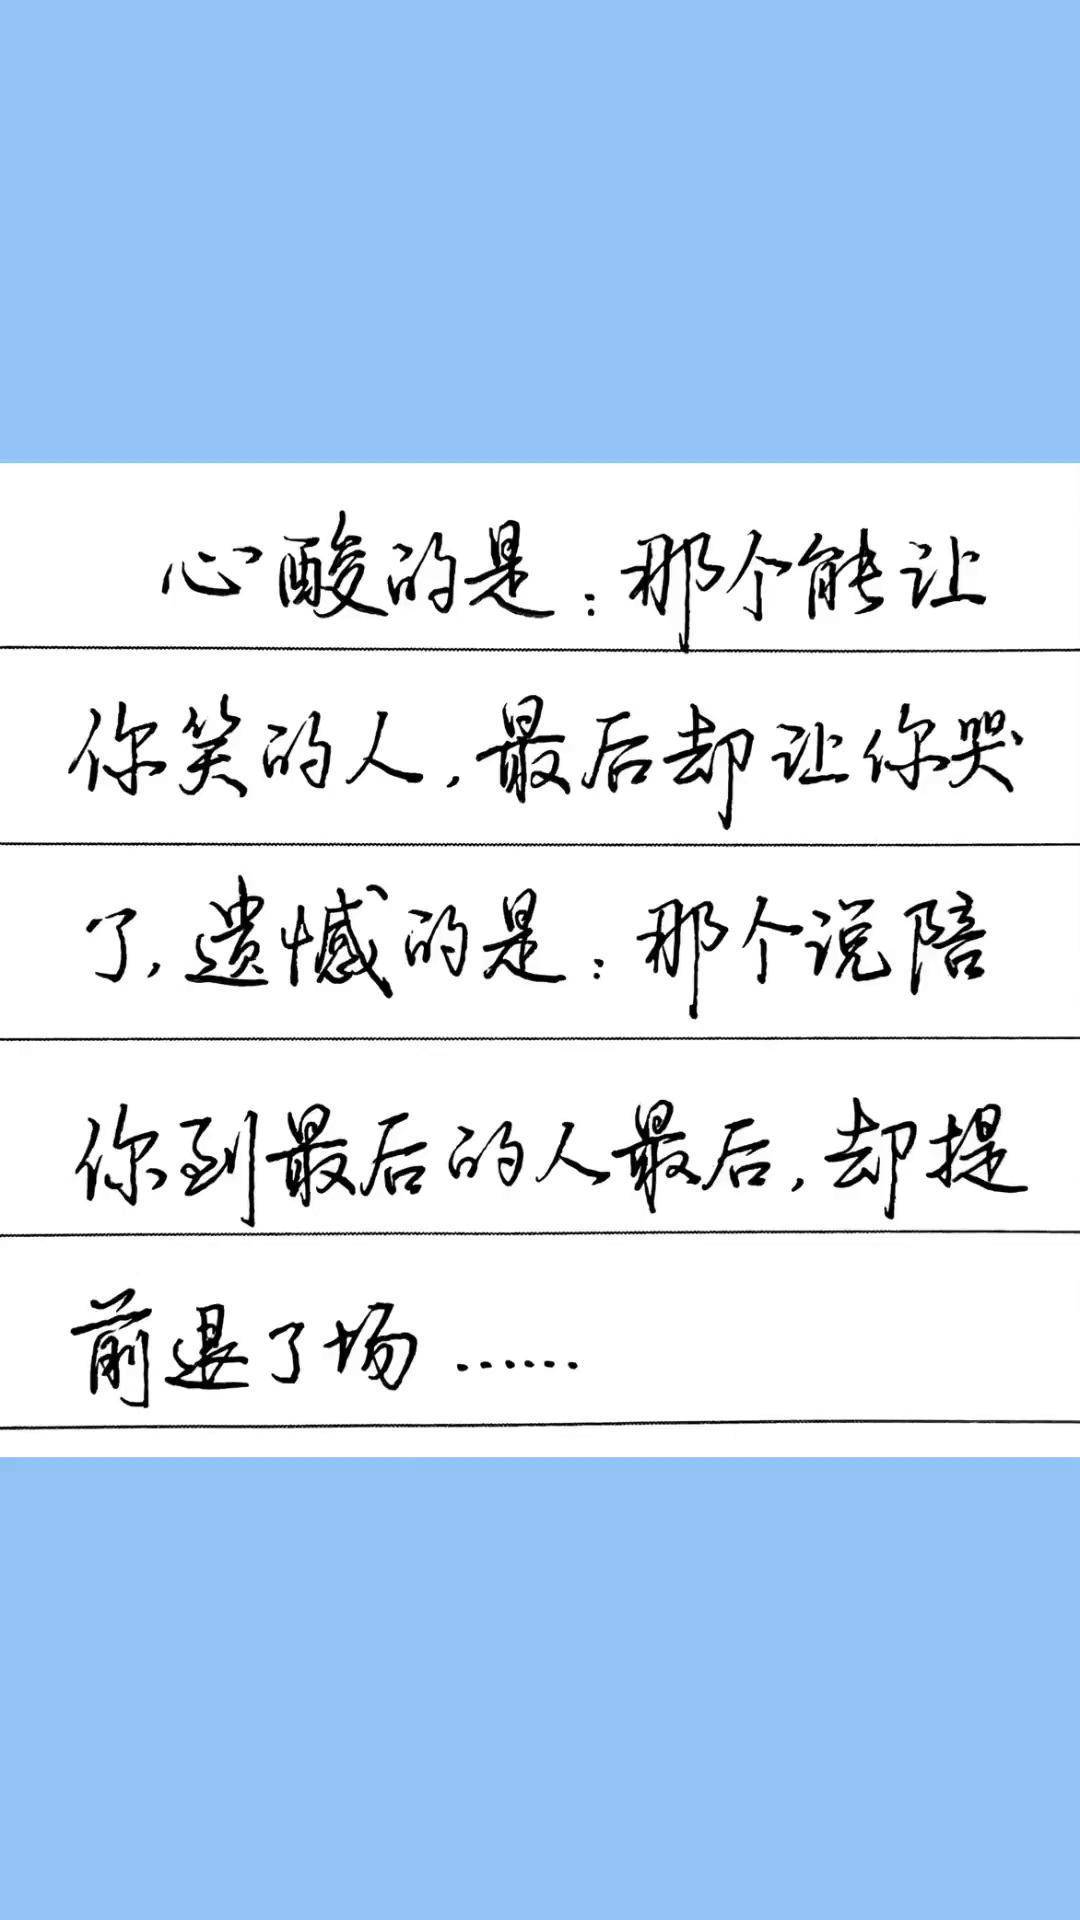 心酸的是：那个能让
你笑的人，最后却让你哭
了，遗憾的是：那个说陪
你到最后的人最后，却提
前退了场……